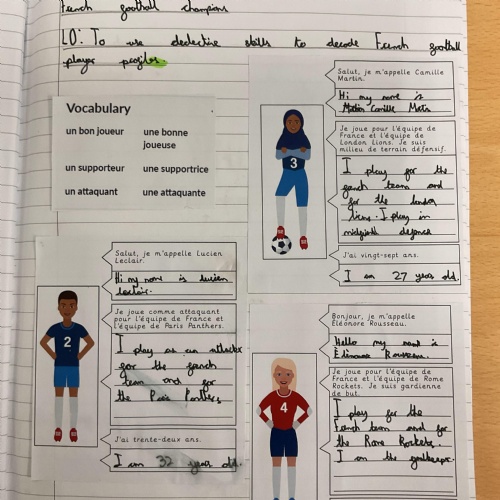 French football champions
LO: To use detective skills to decode French football
player profiles.
Vocabulary
un bon joueur
une bonne
joueuse
un supporteur
une supportrice
un attaquant
une attaquante
Salut, je m'appelle Camille
Martin.
Hi my name is
Camille
3
Je joue pour l'équipe de
France et l'équipe de
London Lions. Je suis
milieu de terrain défensif.
I play for the
french team and
for the london
lions. I play in
defence
J'ai vingt-sept ans.
I am 27 years old.
Salut, je m'appelle Lucien
Leclair.
Hi my name is lucien
leclair.
2
Je joue comme attaquant
pour l'équipe de France et
l'équipe de Paris Panthers.
I play as an attacker
for the french
team and for
the Paris Panthers
J'ai trente-deux ans.
I am 32 years old.
Bonjour, je m'appelle
Éléonore Rousseau.
Hello my name is
Rousseau.
4
Je joue pour l'équipe de
France et l'équipe de Rome
Rockets. Je suis gardienne
de but.
I play for the
French team and for
the Rome Rockets.
I am the goalkeeper.